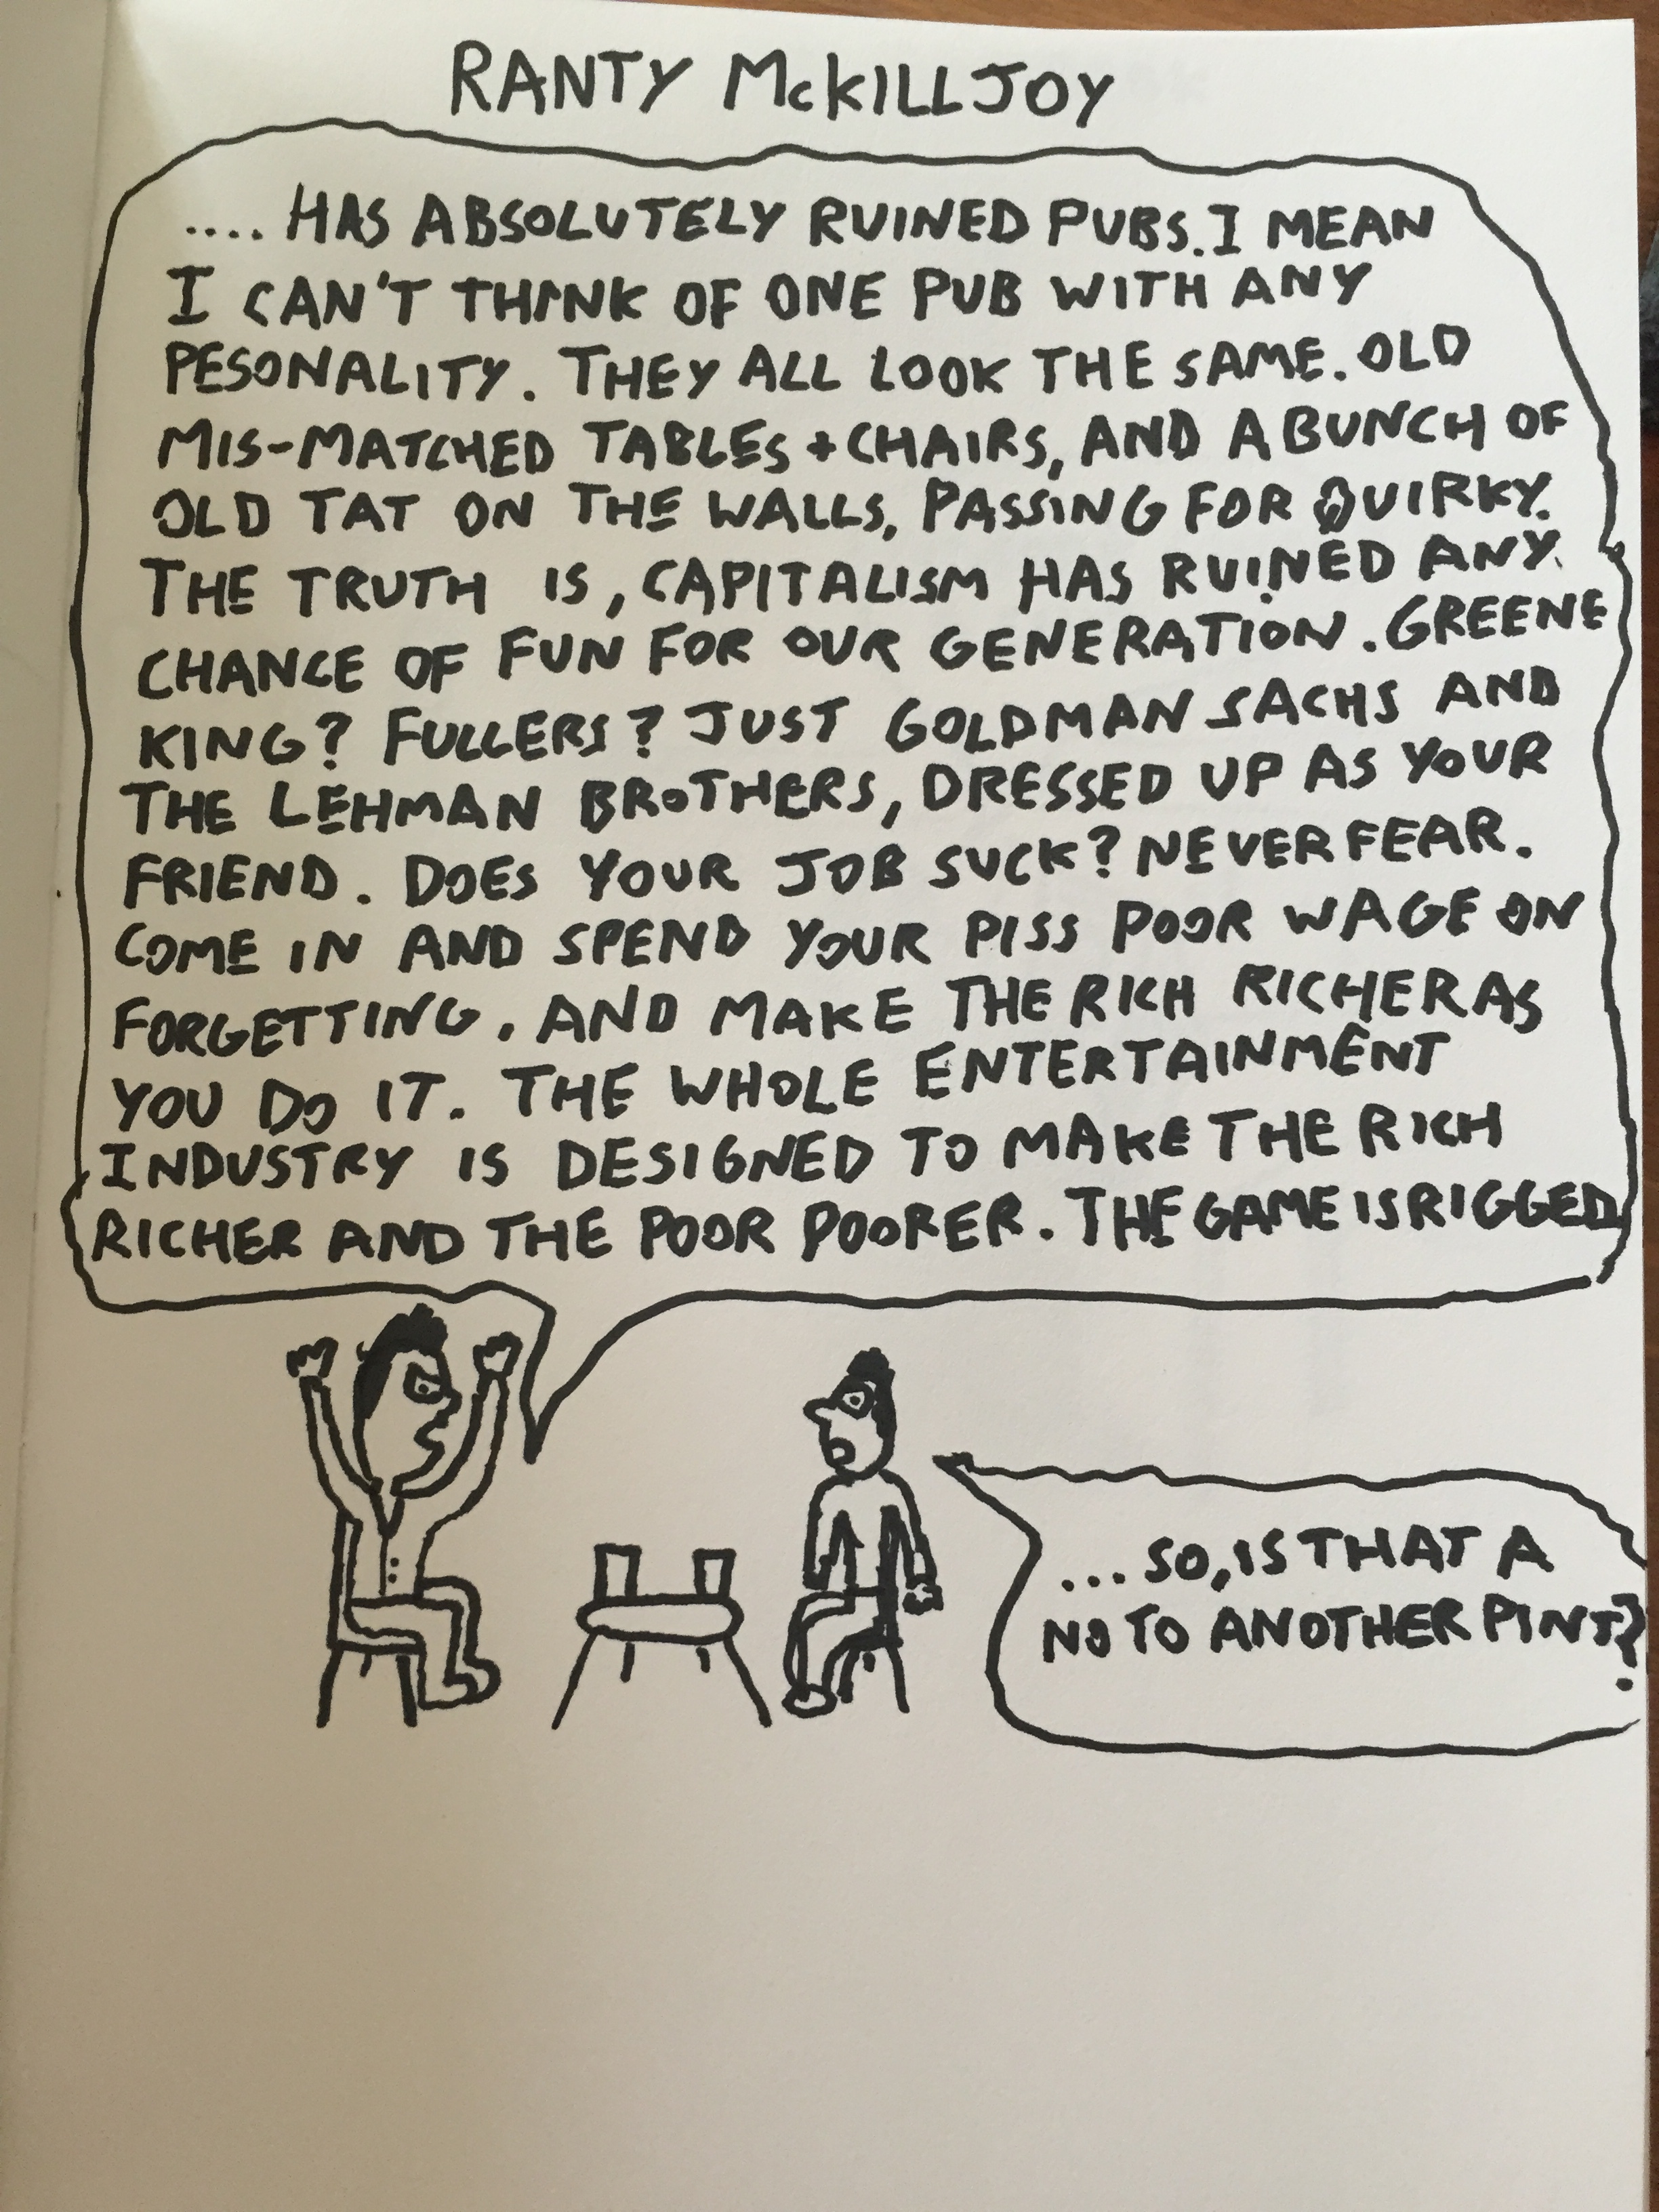 RANTY McKILLJOY
.... HAS ABSOLUTELY RUINED PUBS. I MEAN
I CAN'T THINK OF ONE PUB WITH ANY
PESONALITY. THEY ALL LOOK THE SAME. OLD
MIS-MATCHED TABLES + CHAIRS, AND A BUNCH OF
OLD TAT ON THE WALLS, PASSING FOR QUIRKY.
THE TRUTH IS, CAPITALISM HAS RUINED ANY
CHANCE OF FUN FOR OUR GENERATION. GREENE
KING? FULLERS? JUST GOLDMAN SACHS AND
THE LEHMAN BROTHERS, DRESSED UP AS YOUR
FRIEND. DOES YOUR JOB SUCK? NEVER FEAR.
COME IN AND SPEND YOUR PISS POOR WAGE ON
FORGETTING. AND MAKE THE RICH RICHER AS
YOU DO IT. THE WHOLE ENTERTAINMENT
INDUSTRY IS DESIGNED TO MAKE THE RICH
RICHER AND THE POOR POORER. THE GAME IS RIGGED
... SO, IS THAT A
NO TO ANOTHER PINT?